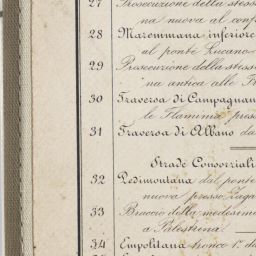 27 Prosecuzione della stess
na nuova al conf
28 Maremmana inferiore
al ponte Lucano
29 Prosecuzione della stess
na antica alle F
30 Traversa di Campagnan
le Flaminia press
31 Traversa di Albano da
Strade Consorziali
32 Pedimontana dal ponte
nuova presso Zaga
33 Braccio della medesima
a Palestrina
34 Empolitana tronco 1º da